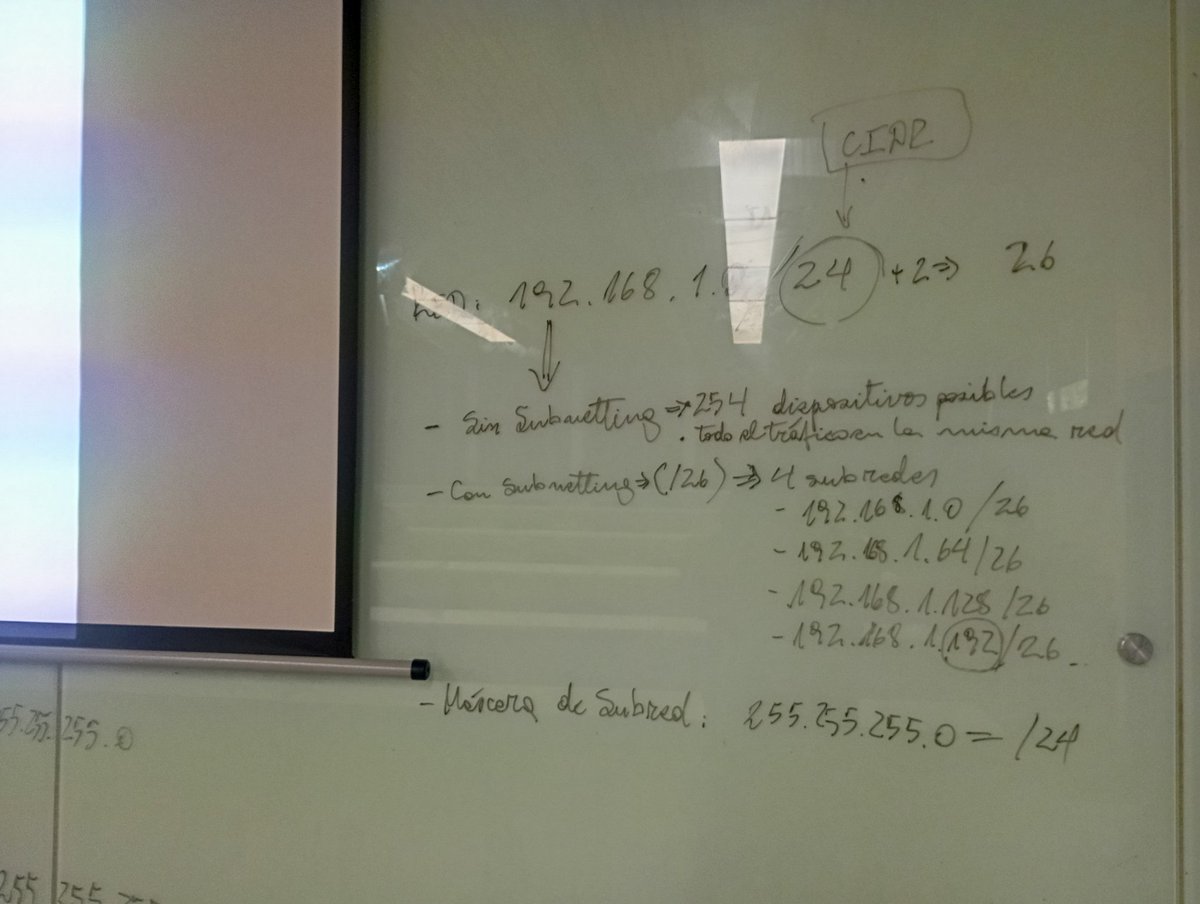 CIDR
RED: 192.168.1.0 /24 +2 ⇒ 26
- Sin Subnetting ⇒ 254 dispositivos posibles
. todo el tráfico en la misma red
- Con subnetting ⇒ (/26) ⇒ 4 subredes
- 192.168.1.0 /26
- 192.168.1.64/26
- 192.168.1.128 /26
- 192.168.1.192/26
- Máscara de Subred: 255.255.255.0 = /24
55.255.255.0
255 255.255